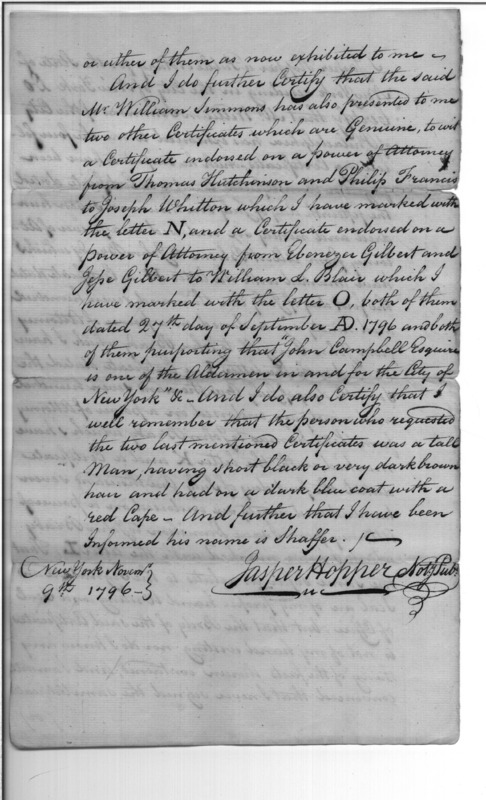 or either of them as now exhibited to me
And I do further Certify that the said
Mr. William Simmons has also presented to me
two other Certificates which are Genuine, to wit
a Certificate endorsed on a power of Attorney
from Thomas Hutchinson and Philip Francis
to Joseph Whitton which I have marked with
the letter N, and a Certificate endorsed on a
power of Attorney from Ebenezer Gilbert and
Jesse Gilbert to William L. Blair which I
have marked with the letter O, both of them
dated 27th day of September AD. 1796 and both
of them purporting that "John Campbell Esquire
is one of the Aldermen in and for the City of
New York" &c - And I do also Certify that I
well remember that the person who requested
the two last mentioned Certificates was a tall
Man, having short black or very dark brown
hair and had on a dark blue coat with a
red Cape - And further that I have been
Informed his name is Shaffer.
New York Novemr.
9th 1796
Jasper Hopper Noty Pub.